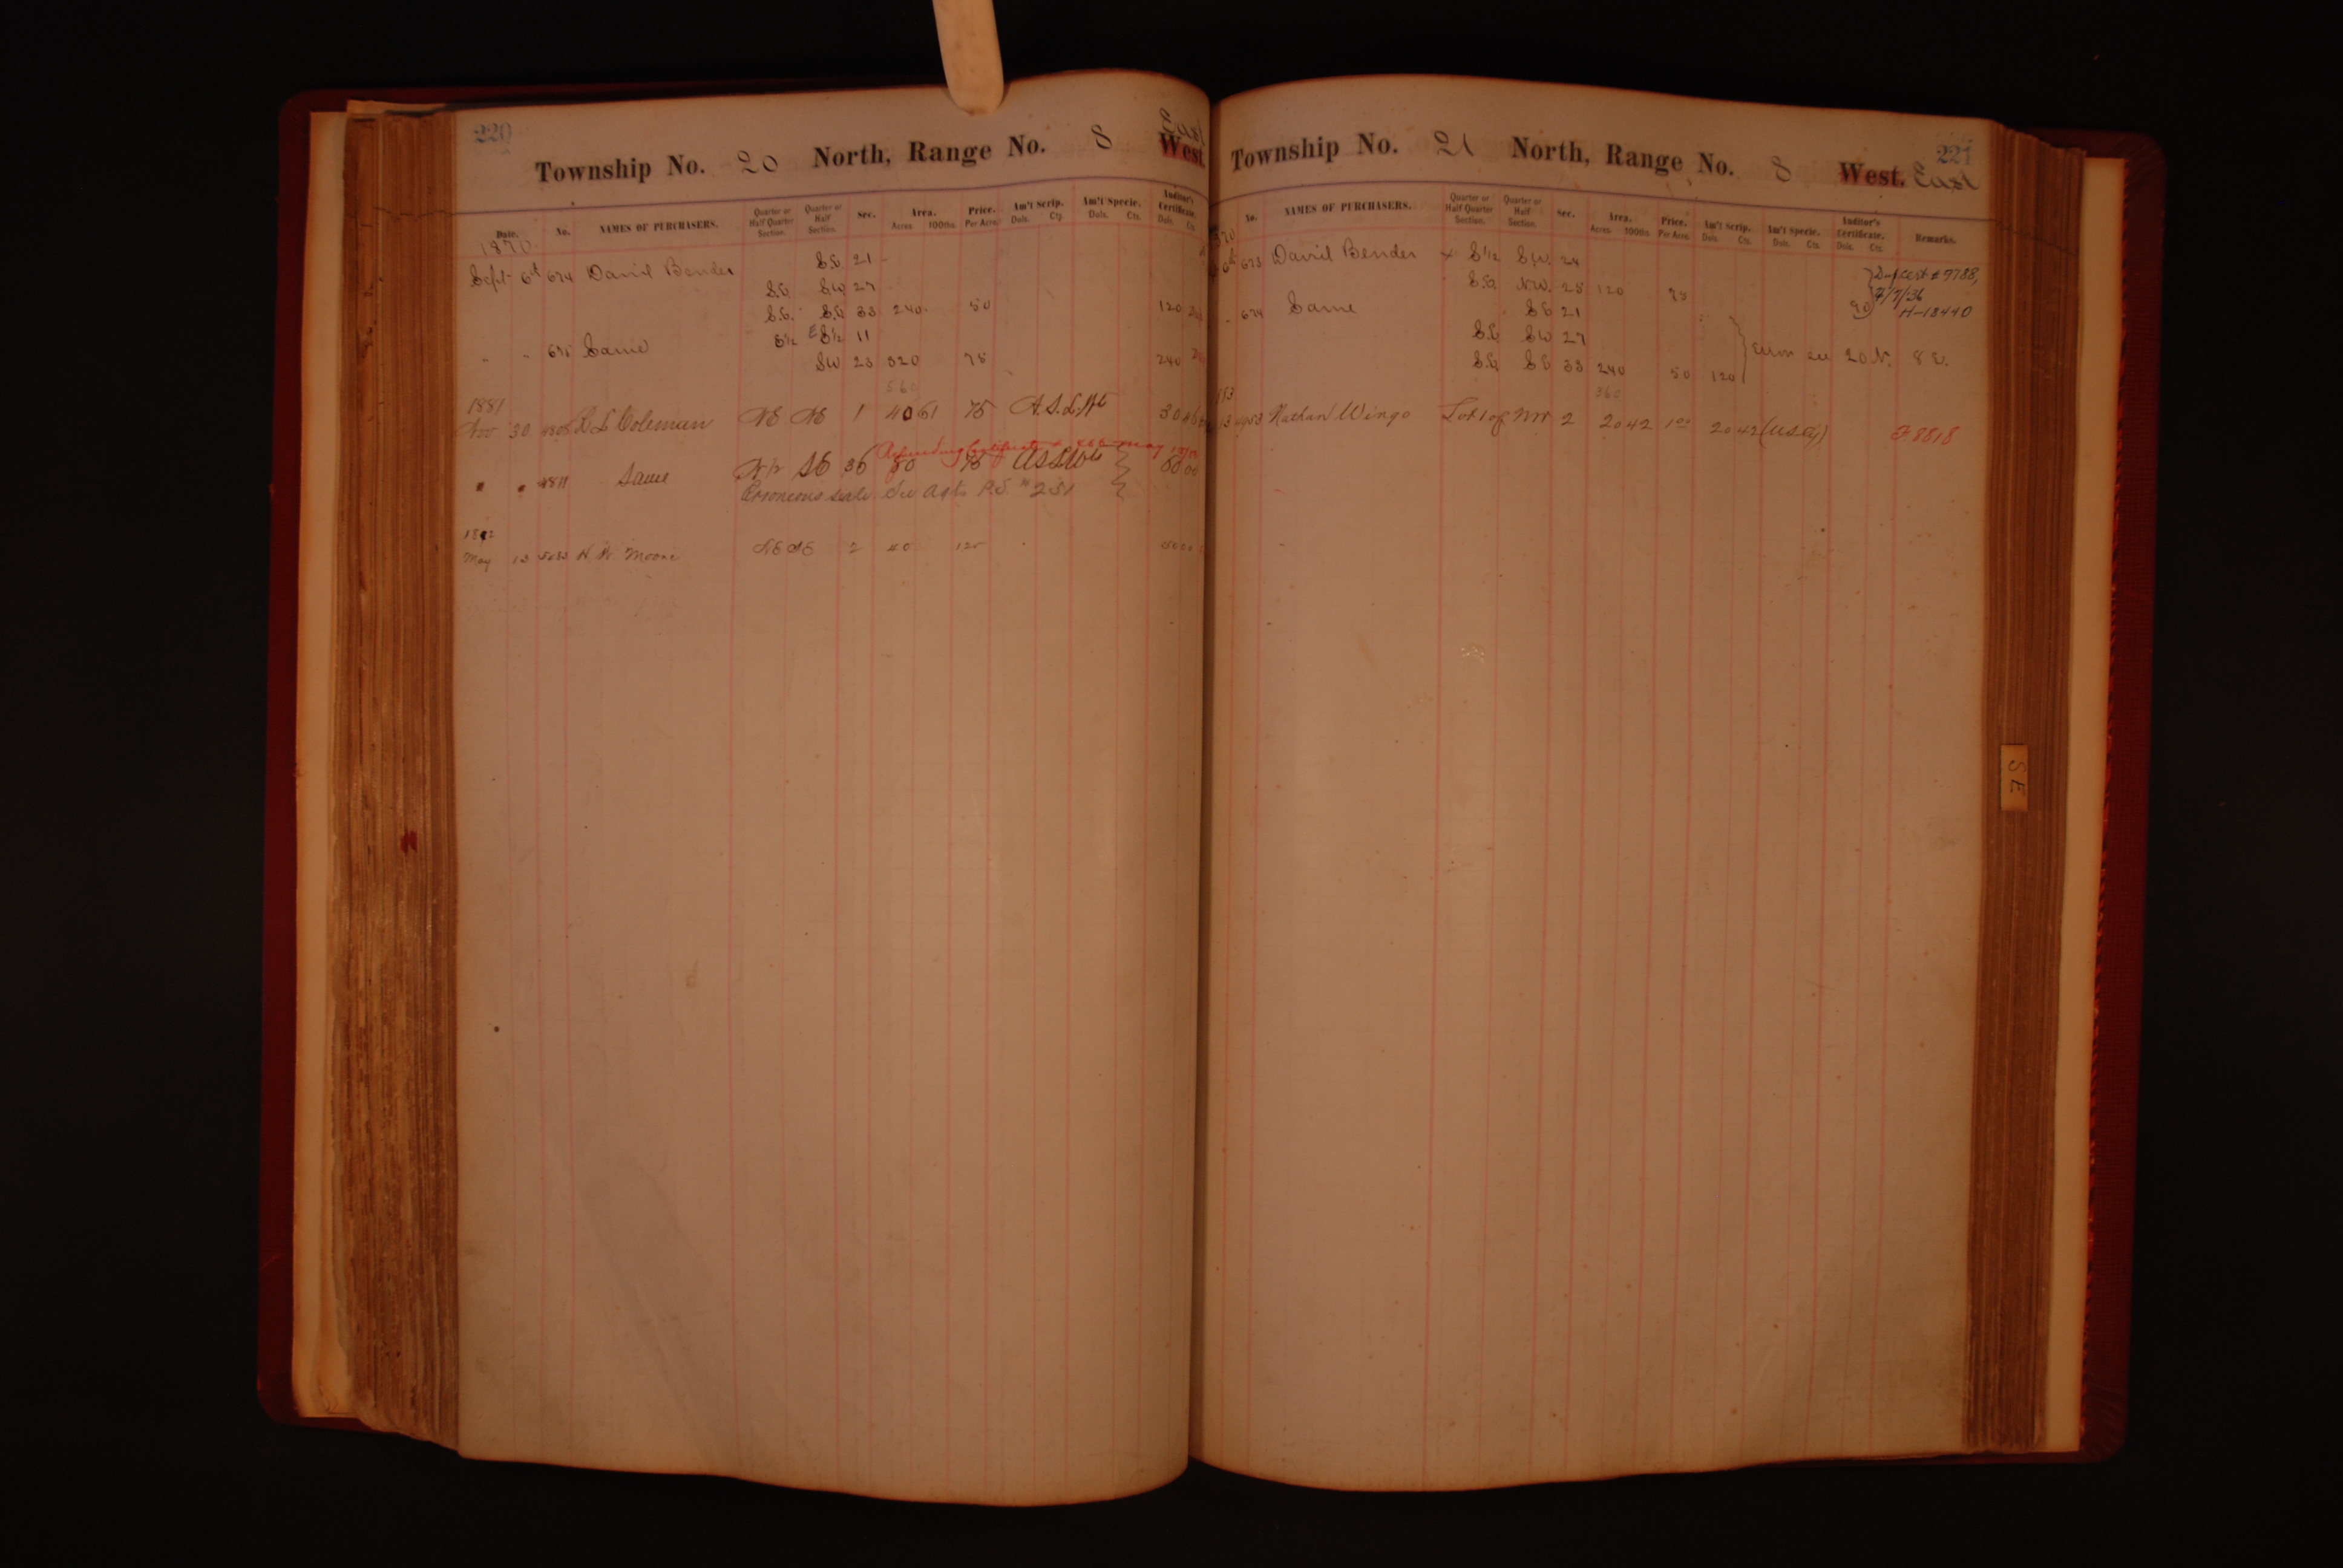 220
Township No. 20 North, Range No. 8 West. East
Date. No. NAMES OF PURCHASERS. Quarter or Half Quarter Section. Quarter or Half Section. Sec. Area. Acres 100ths. Price. Per Acre. Am't Scrip. Dols. Cts. Am't Specie. Dols. Cts. Auditor's Certificate. Dols. Cts.
1870
Sept 6th 674 David Bender S.E. 21
S.E. SW 27
S.E. S.E. 33 240 50 120
" " 675 Same E 1/2 E S 1/2 11
SW 23 320 75 240
560
1881
Nov 30 4808 Coleman NE NE 1 40 61 75 30
Refunding Certificate
" " 4811 Same N/2 SE 36 80 75 60 00
Erroneous sale See P.S. # 251
1882
May 13 Moore NE SE 2 40 125 50 00
221
Township No. 21 North, Range No. 8 West. East
No. NAMES OF PURCHASERS. Quarter or Half Quarter Section. Quarter or Half Section. Sec. Area. Acres. 100ths. Price. Per Acre. Am't Scrip. Dols. Cts. Am't Specie. Dols. Cts. Auditor's Certificate. Dols. Cts. Remarks.
6th 673 David Bender x S 1/2 SW. 24
S.E. NW. 25 120 75 90
Dup cert # 7788,
7/7/36
H-18440
" 674 Same SE 21
S.E. SW 27
S.E. SE 33 240 50 120 Error see 20 N. 8 E.
360
13 Nathan Wingo Lot 1 of NW 2 20 42 1 00 20 42 (USG)
F. 8818
SE